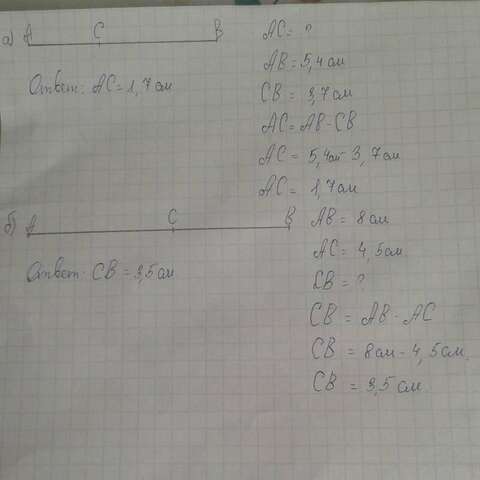 а) A C B
Ответ: AC = 1,7 см
AC = ?
AB = 5,4 см
CB = 3,7 см
AC = AB - CB
AC = 5,4 см - 3,7 см
AC = 1,7 см
б) A C B
Ответ: CB = 3,5 см
AB = 8 см
AC = 4,5 см.
CB = ?
CB = AB - AC
CB = 8 см - 4,5 см.
CB = 3,5 см.